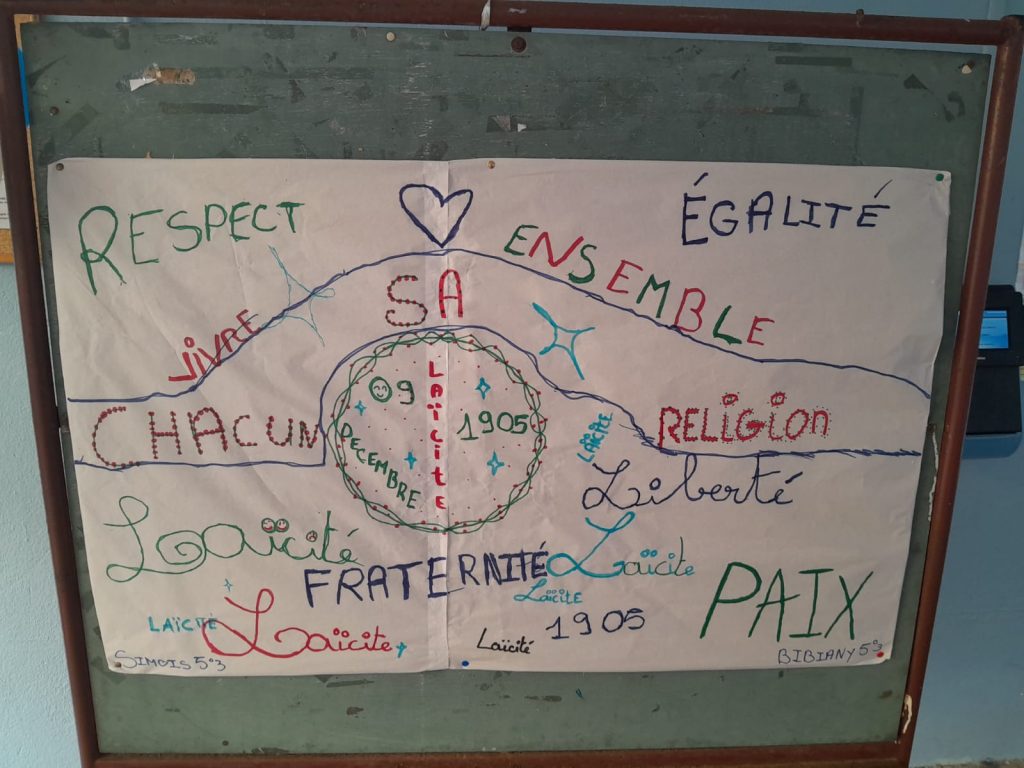 RESPECT
ÉGALITÉ
VIVRE ENSEMBLE
CHACUN SA RELIGION
09
DECEMBRE
LAÏCITE
1905
LAÏCITE
Liberté
Laïcité
FRATERNITÉ
Laïcite
LaïcitE
1905
PAIX
LAÏCTÉ
Laïcite
Laïcité
SIMOIS 5°3
BIBIANY 5°3